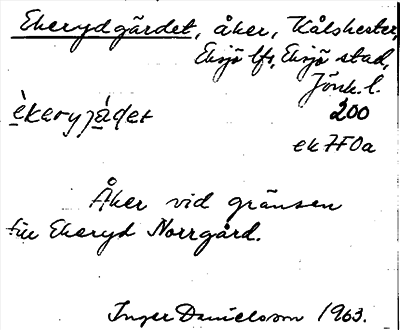 Ekerydgärdet, åker, Kålshester,
Eksjö lfs, Eksjö stad,
Jönk. l.
èkeryjádet 200
ek 7F0a
Åker vid gränsen
till Ekeryd Norrgård.
Inger Danielsson 1963.